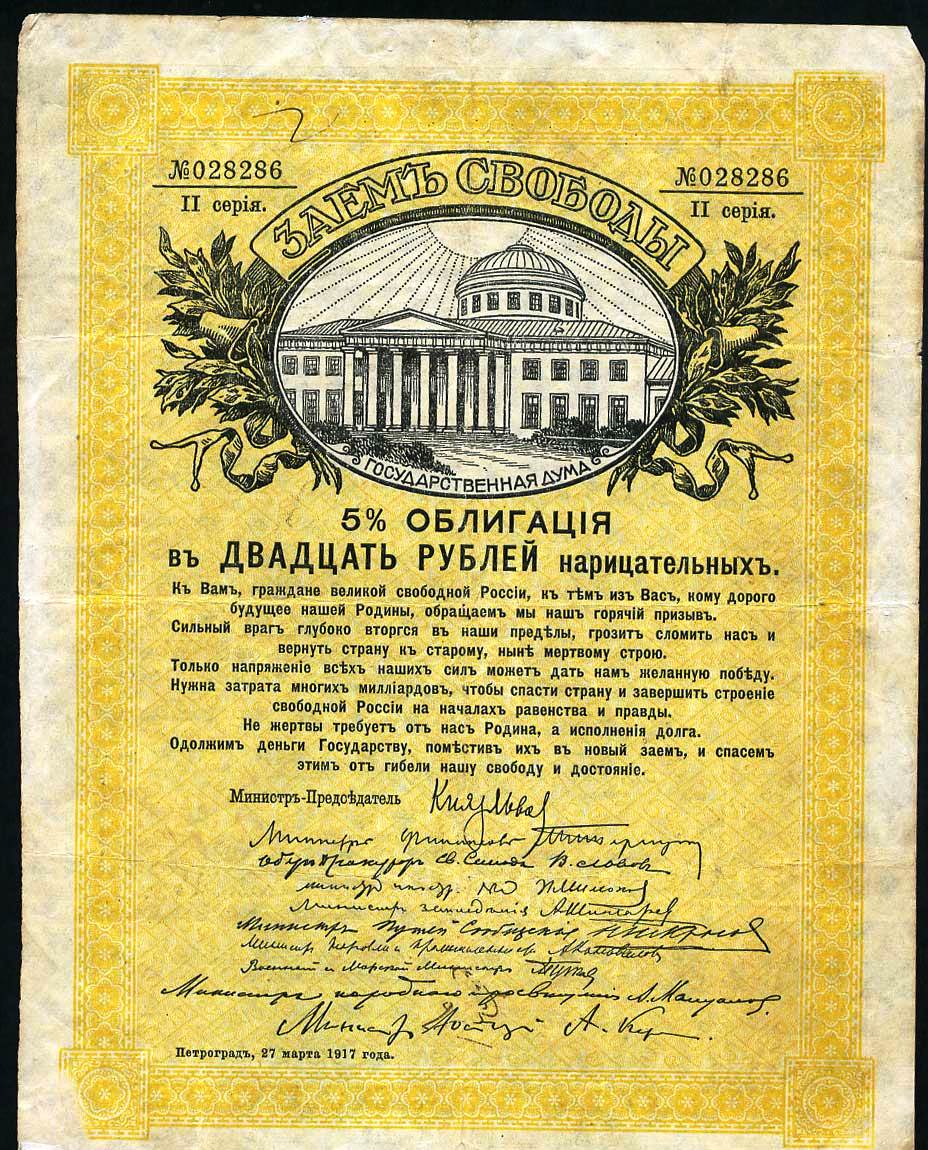 №028286
№028286
II серія.
II серія.
ЗАЕМЪ СВОБОДЫ
ГОСУДАРСТВЕННАЯ ДУМА
5% ОБЛИГАЦІЯ
въ ДВАДЦАТЬ РУБЛЕЙ нарицательныхъ.
Къ Вамъ, граждане великой свободной Россіи, къ тѣмъ изъ Васъ, кому дорого
будущее нашей Родины, обращаемъ мы нашъ горячій призывъ.
Сильный врагъ глубоко вторгся въ наши предѣлы, грозитъ сломить насъ и
вернуть страну къ старому, нынѣ мертвому строю.
Только напряженіе всѣхъ нашихъ силъ можетъ дать намъ желанную побѣду.
Нужна затрата многихъ милліардовъ, чтобы спасти страну и завершить строеніе
свободной Россіи на началахъ равенства и правды.
Не жертвы требуетъ отъ насъ Родина, а исполненія долга.
Одолжимъ деньги Государству, помѣстивъ ихъ въ новый заемъ, и спасемъ
этимъ отъ гибели нашу свободу и достояніе.
Министръ-Предсѣдатель Князь Львов
Министръ финансовъ
Оберъ Прокуроръ Св. Синода В. Львовъ
Министръ земледѣлія А. Шингарев
Министръ Путей Сообщенія Н. Некрасов
Военный и Морской Министръ
Министръ народнаго просвѣщенія А. Мануйлов.
Министръ Юстиціи А. Кер
Петроградъ, 27 марта 1917 года.